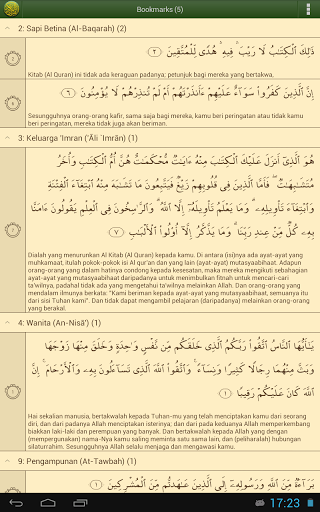 Bookmarks (5)
2: Sapi Betina (Al-Baqarah) (2)
ذَٰلِكَ ٱلْكِتَـٰبُ لَا رَيْبَ ۛ فِيهِ ۛ هُدًى لِّلْمُتَّقِينَ ٢
2
Kitab (Al Quran) ini tidak ada keraguan padanya; petunjuk bagi mereka yang bertakwa.
إِنَّ ٱلَّذِينَ كَفَرُوا۟ سَوَآءٌ عَلَيْهِمْ ءَأَنذَرْتَهُمْ أَمْ لَمْ تُنذِرْهُمْ لَا يُؤْمِنُونَ ٦
6
Sesungguhnya orang-orang kafir, sama saja bagi mereka, kamu beri peringatan atau tidak kamu
beri peringatan, mereka tidak juga akan beriman.
3: Keluarga 'Imran (Āli `Imrān) (1)
هُوَ ٱلَّذِىٓ أَنزَلَ عَلَيْكَ ٱلْكِتَـٰبَ مِنْهُ ءَايَـٰتٌ مُّحْكَمَـٰتٌ هُنَّ أُمُّ ٱلْكِتَـٰبِ وَأُخَرُ
مُتَشَـٰبِهَـٰتٌ ۖ فَأَمَّا ٱلَّذِينَ فِى قُلُوبِهِمْ زَيْغٌ فَيَتَّبِعُونَ مَا تَشَـٰبَهَ مِنْهُ ٱبْتِغَآءَ ٱلْفِتْنَةِ
وَٱبْتِغَآءَ تَأْوِيلِهِۦ ۗ وَمَا يَعْلَمُ تَأْوِيلَهُۥٓ إِلَّا ٱللَّهُ ۗ وَٱلرَّٰسِخُونَ فِى ٱلْعِلْمِ يَقُولُونَ ءَامَنَّا
بِهِۦ كُلٌّ مِّنْ عِندِ رَبِّنَا ۗ وَمَا يَذَّكَّرُ إِلَّآ أُو۟لُوا۟ ٱلْأَلْبَـٰبِ ٧
7
Dialah yang menurunkan Al Kitab (Al Quran) kepada kamu. Di antara (isi)nya ada ayat-ayat yang
muhkamaat, itulah pokok-pokok isi Al qur'an dan yang lain (ayat-ayat) mutasyaabihaat. Adapun
orang-orang yang dalam hatinya condong kepada kesesatan, maka mereka mengikuti sebahagian
ayat-ayat yang mutasyaabihaat daripadanya untuk menimbulkan fitnah untuk mencari-cari
ta'wilnya, padahal tidak ada yang mengetahui ta'wilnya melainkan Allah. Dan orang-orang yang
mendalam ilmunya berkata: "Kami beriman kepada ayat-ayat yang mutasyaabihaat, semuanya itu
dari sisi Tuhan kami". Dan tidak dapat mengambil pelajaran (daripadanya) melainkan orang-orang
yang berakal.
4: Wanita (An-Nisā') (1)
يَـٰٓأَيُّهَا ٱلنَّاسُ ٱتَّقُوا۟ رَبَّكُمُ ٱلَّذِى خَلَقَكُم مِّن نَّفْسٍ وَٰحِدَةٍ وَخَلَقَ مِنْهَا زَوْجَهَا
وَبَثَّ مِنْهُمَا رِجَالًا كَثِيرًا وَنِسَآءً ۚ وَٱتَّقُوا۟ ٱللَّهَ ٱلَّذِى تَسَآءَلُونَ بِهِۦ وَٱلْأَرْحَامَ ۚ إِنَّ
ٱللَّهَ كَانَ عَلَيْكُمْ رَقِيبًا ١
1
Hai sekalian manusia, bertakwalah kepada Tuhan-mu yang telah menciptakan kamu dari seorang
diri, dan dari padanya Allah menciptakan isterinya; dan dari pada keduanya Allah memperkembang
biakkan laki-laki dan perempuan yang banyak. Dan bertakwalah kepada Allah yang dengan
(mempergunakan) nama-Nya kamu saling meminta satu sama lain, dan (peliharalah) hubungan
silaturrahim. Sesungguhnya Allah selalu menjaga dan mengawasi kamu.
9: Pengampunan (At-Tawbah) (1)
بَرَآءَةٌ مِّنَ ٱللَّهِ وَرَسُولِهِۦٓ إِلَى ٱلَّذِينَ عَـٰهَدتُّم مِّنَ ٱلْمُشْرِكِينَ ١
17:23